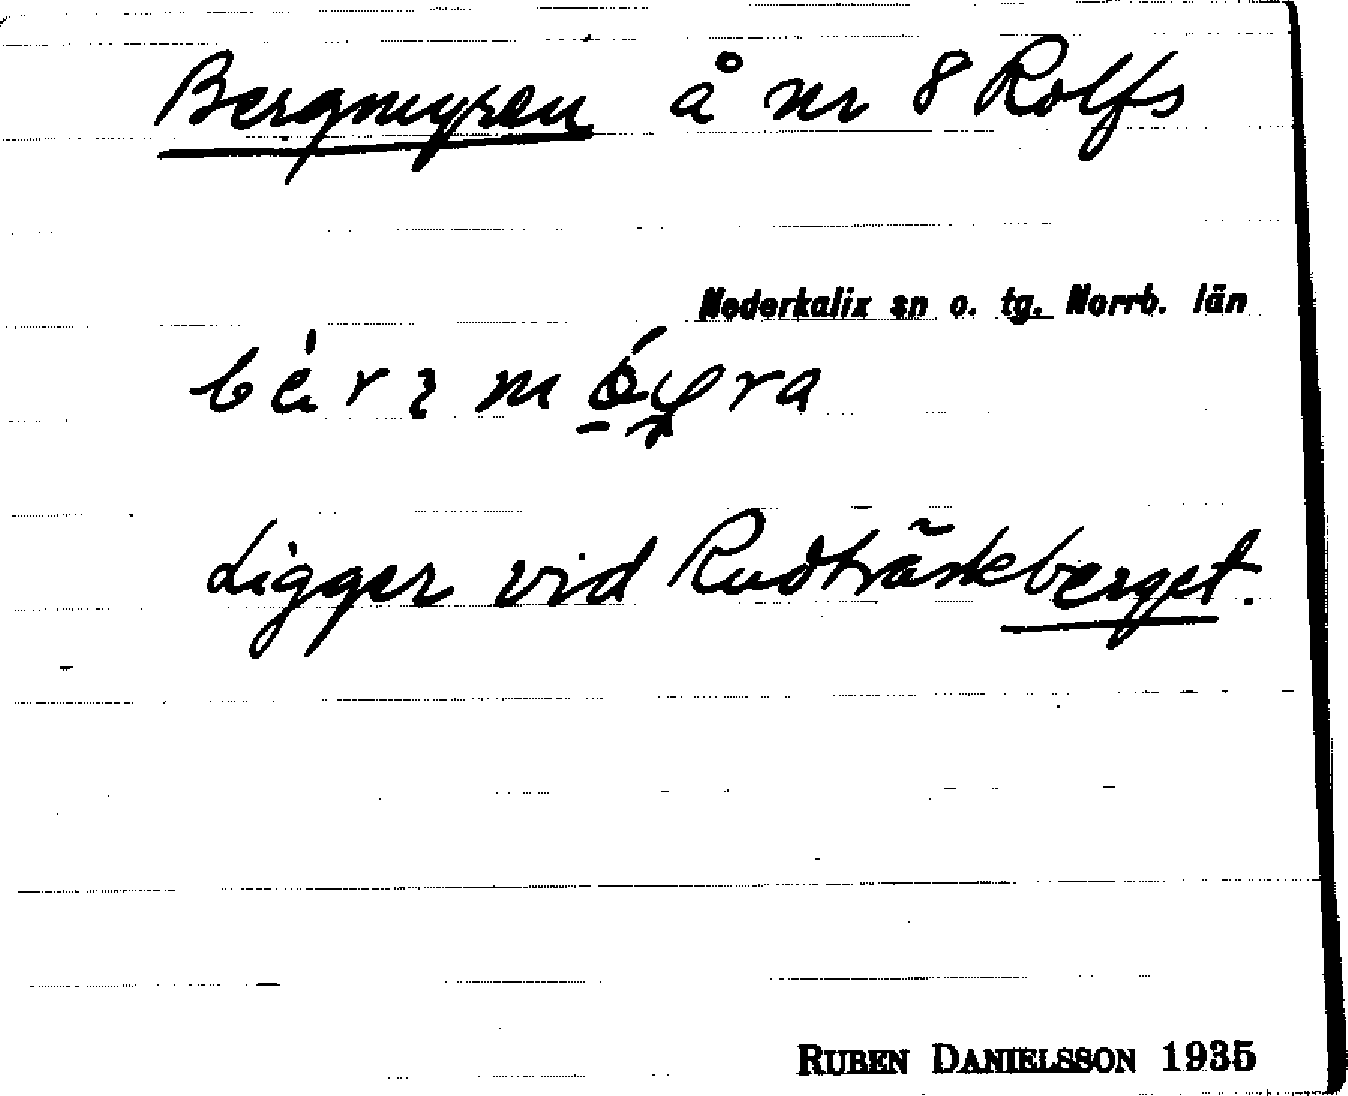 Bergmyren å nr 8 Rolfs
Nederkalix sn o. tg. Norrb. län
Ligger vid Rudträskberget.
RUBEN DANIELSSON 1935